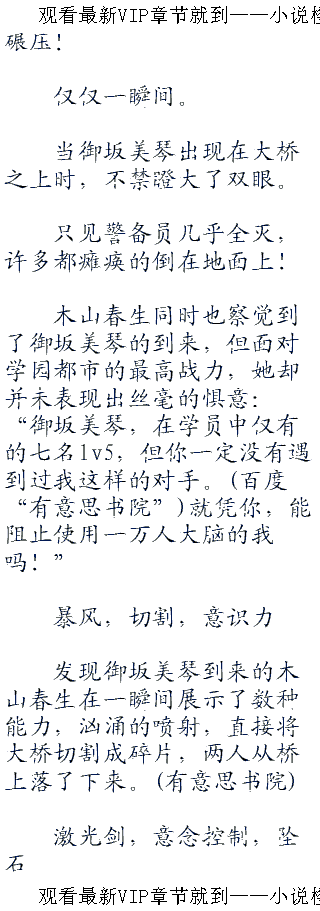 观看最新VIP章节就到——小说楼
碾压！
仅仅一瞬间。
当御坂美琴出现在大桥
之上时，不禁瞪大了双眼。
只见警备员几乎全灭，
许多都瘫痪的倒在地面上！
木山春生同时也察觉到
了御坂美琴的到来，但面对
学园都市的最高战力，她却
并未表现出丝毫的惧意：
“御坂美琴，在学员中仅有
的七名lv5，但你一定没有遇
到过我这样的对手。(百度
“有意思书院”)就凭你，能
阻止使用一万人大脑的我
吗！”
暴风，切割，意识力
发现御坂美琴到来的木
山春生在一瞬间展示了数种
能力，汹涌的喷射，直接将
大桥切割成碎片，两人从桥
上落了下来。(有意思书院)
激光剑，意念控制，坠
石
观看最新VIP章节就到——小说楼